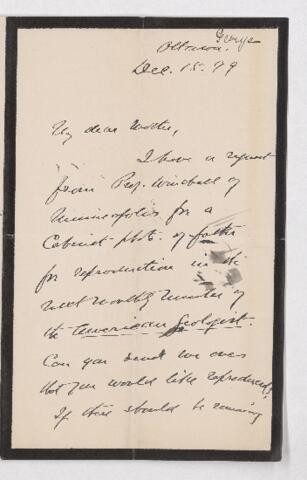 George
Ottawa.
Dec. 15. 99
My dear Mother,
I have a request
from Prof. Winchell of
Minneapolis for a
Cabinet photo. of father
for reproduction in the
next monthly number of
the American Geologist.
Can you send me one
that you would like reproduced?
If there should be remaining